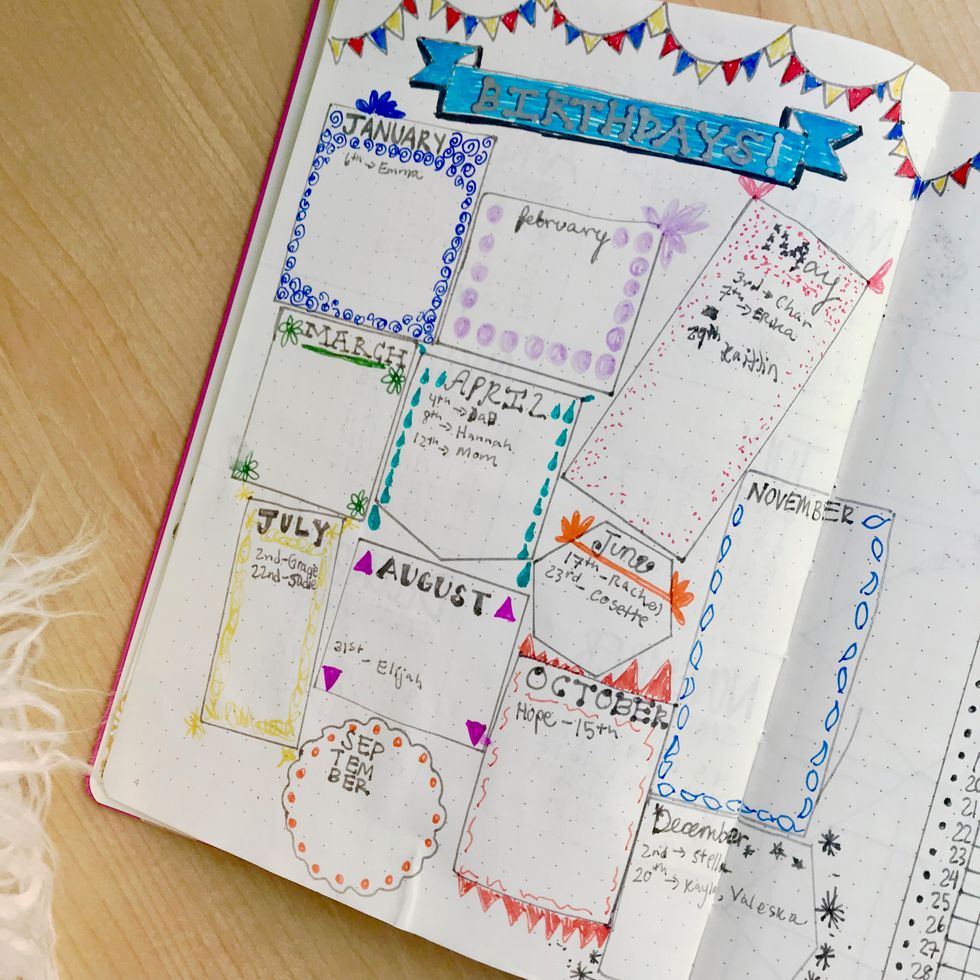 BIRTHDAYS!
JANUARY
6th → Emma
february
May
3rd → Char
7th → Erika
29th Kaitlin
MARCH
APRIL
4th → DaD
8th → Hannah
12th → Mom
JULY
2nd - Grage
22nd - Sadie
AUGUST
31st - Elijah
June
17th - Rachel
23rd - Cosette
NOVEMBER
SEP
TEM
BER
OCTOBER
Hope - 15th
December
2nd → Stella
20th → Kayla, Valeska
4
20
21
22
23
24
25
26
27
28